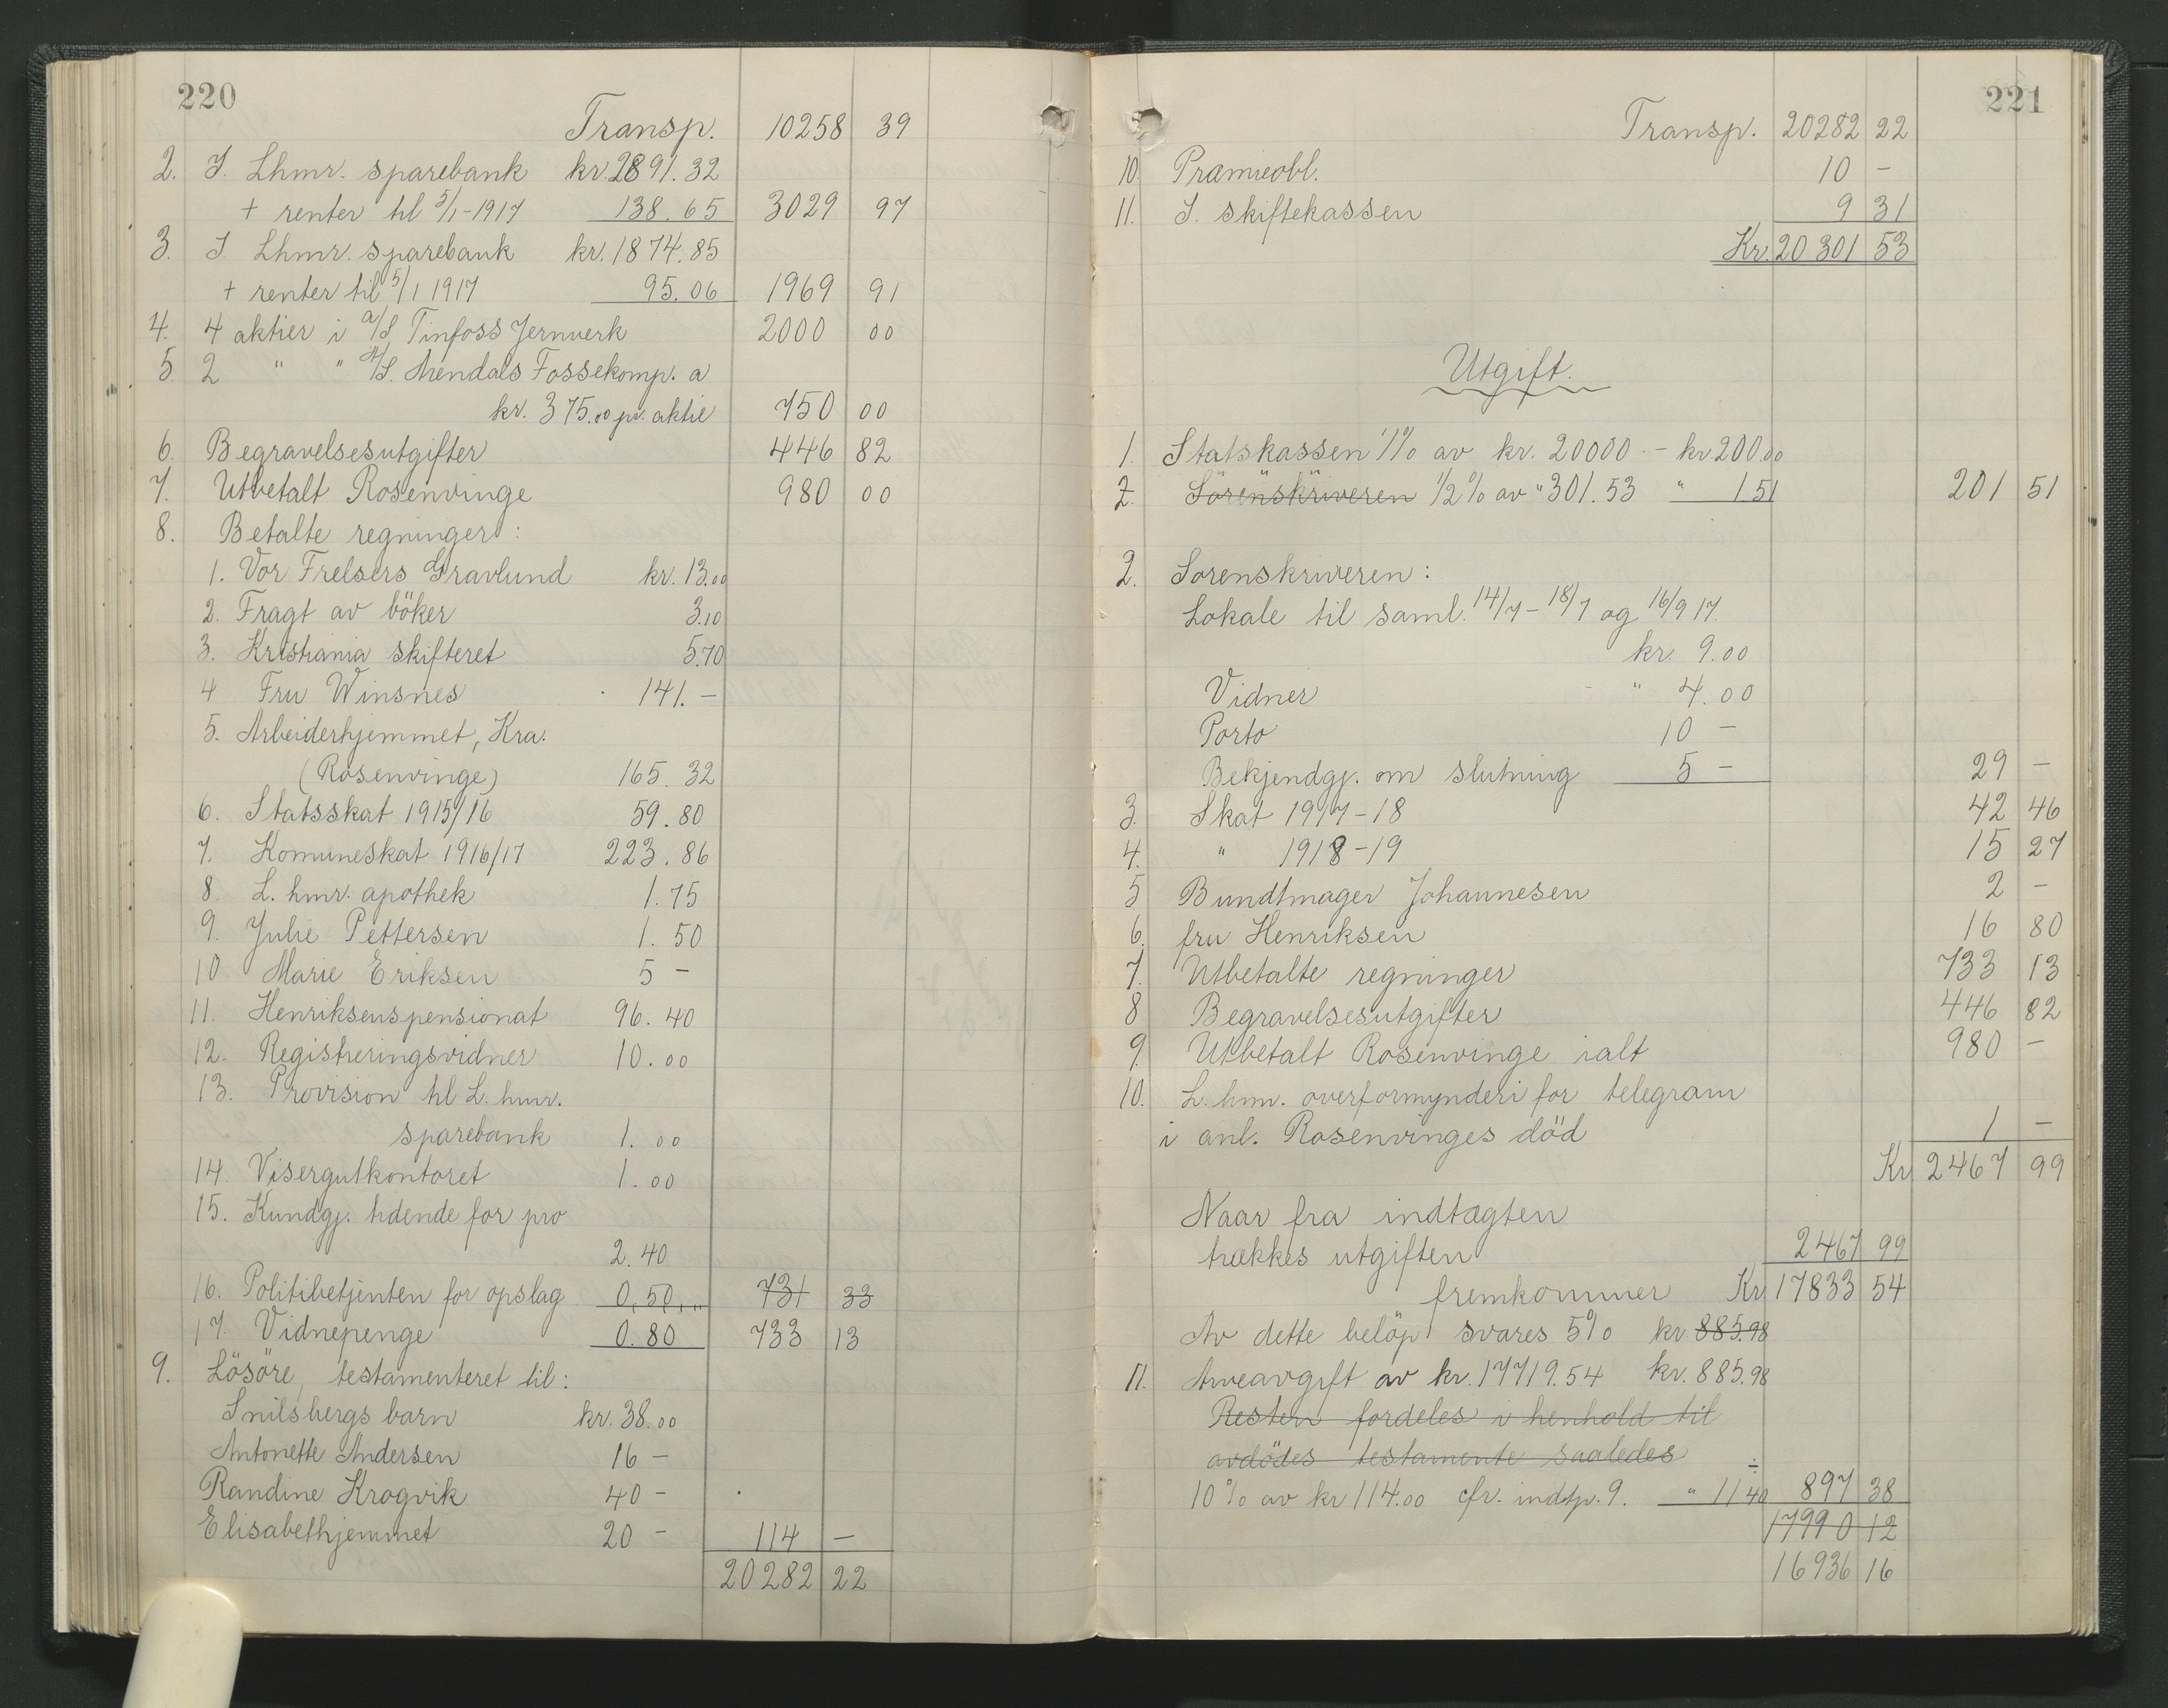 220
Transp. 10258 39
2. I. Lhmr. sparebank kr. 2891.32
+ renter til 5/1-1917 138.65 3029 97
3. I. Lhmr. sparebank kr. 1874.85
+ renter til 5/1 1917 95.06 1969 91
4. 4 aktier i a/S Tinfoss Jernverk 2000 00
5 2 " " A/S. Arendals Fossekomp. a
kr. 375.00 pr. aktie 750 00
6. Begravelsesutgifter 446 82
7. Utbetalt Rosenvinge 980 00
8. Betalte regninger:
1. Vor Frelsers Gravlund kr. 13.00
2. Fragt av böker 3.10
3. Kristiania skifteret 5.70
4 Fru Winsnes 141.-
5. Arbeiderhjemmet, Kra.
(Rosenvinge) 165.32
6. Statsskat 1915/16 59.80
7. Komuneskat 1916/17 223.86
8. L. hmr. apothek 1.75
9. Julie Pettersen 1.50
10 Marie Eriksen 5 -
11. Henriksens pensionat 96.40
12. Registreringsvidner 10.00
13. Provision til L. hmr.
sparebank 1.00
14. Visergutkontoret 1.00
15. Kundgj. tidende for pro
2.40
16. Politibetjenten for opslag 0,50,,, 731 33
17. Vidnepenge 0.80 733 13
9. Lösöre, testamenteret til:
Snilsbergs barn kr. 38.00
Antonette Andersen 16 -
Randine Krogvik 40 -
Elisabethjemmet 20 - 114 -
20282 22
221
Transp. 20282 22
10 Præmieobl. 10 -
11. I. skiftekassen 9 31
Kr. 20301 53
Utgift.
1. Statskassen 1% av kr. 20000.- kr. 200.00
2. Sörenskriveren 1/2% av " 301.53 " 1 51 201 51
2. Sorenskriveren:
Lokale til saml. 14/7 - 18/7 og 16/9 17.
kr. 9.00
Vidner " 4.00
Porto 10 -
Bekjendgj. om slutning 5 - 29 -
3. Skat 1917-18 42 46
4. " 1918-19 15 27
5 Bundtmager Johannesen 2 -
6. fru Henriksen 16 80
7. Utbetalte regninger 733 13
8 Begravelsesutgifter 446 82
9. Utbetalt Rosenvinge ialt 980 -
10. L. hmr. overformynderi for telegram
i anl. Rosenvinges död 1 -
Kr 2467 99
Naar fra indtægten
trækkes utgiften 2467 99
fremkommer Kr 17833 54
Av dette belöp svares 5% kr 885.98
11. Arveavgift av kr. 17719.54 kr. 885.98
Resten fordeles i henhold til
avdödes testamente saaledes
10% av kr 114.00 cfr. indtp. 9. " 11 40 ÷ 897 38
17990 12
16936 16